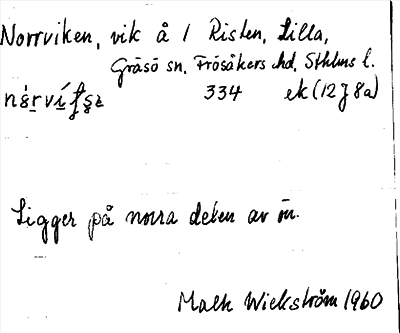 Norrviken, vik å / Risten, Lilla,
Gräsö sn, Frösåkers hd, Sthlms l.
334 ek (12J8a)
Ligger på norra delen av ön.
Wickström 1960